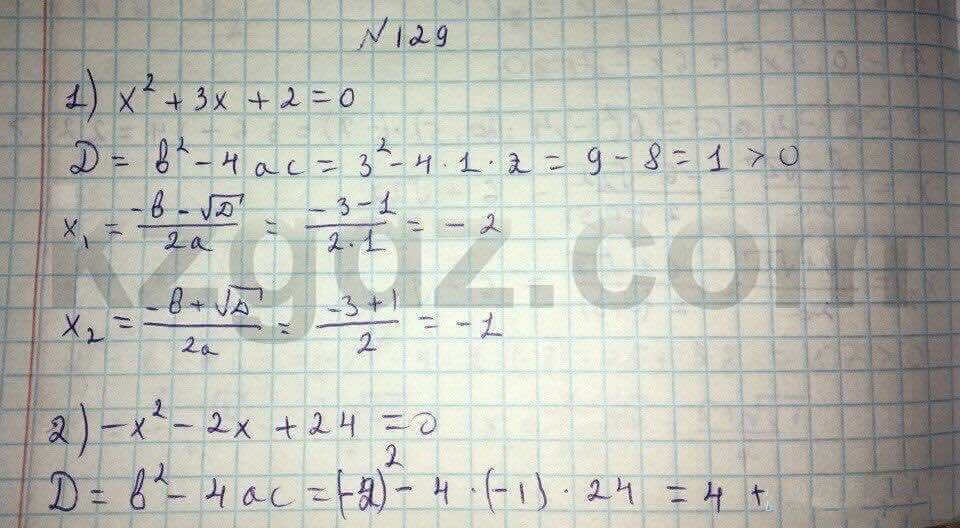 №129
1) x² + 3x + 2 = 0
D = b² - 4ac = 3² - 4 · 1 · 2 = 9 - 8 = 1 > 0
x₁ = (-b - √D)/(2a) = (-3 - 1)/(2 · 1) = -2
kzgdz.com
x₂ = (-b + √D)/(2a) = (-3 + 1)/2 = -1
2) -x² - 2x + 24 = 0
D = b² - 4ac = (-2)² - 4 · (-1) · 24 = 4 +